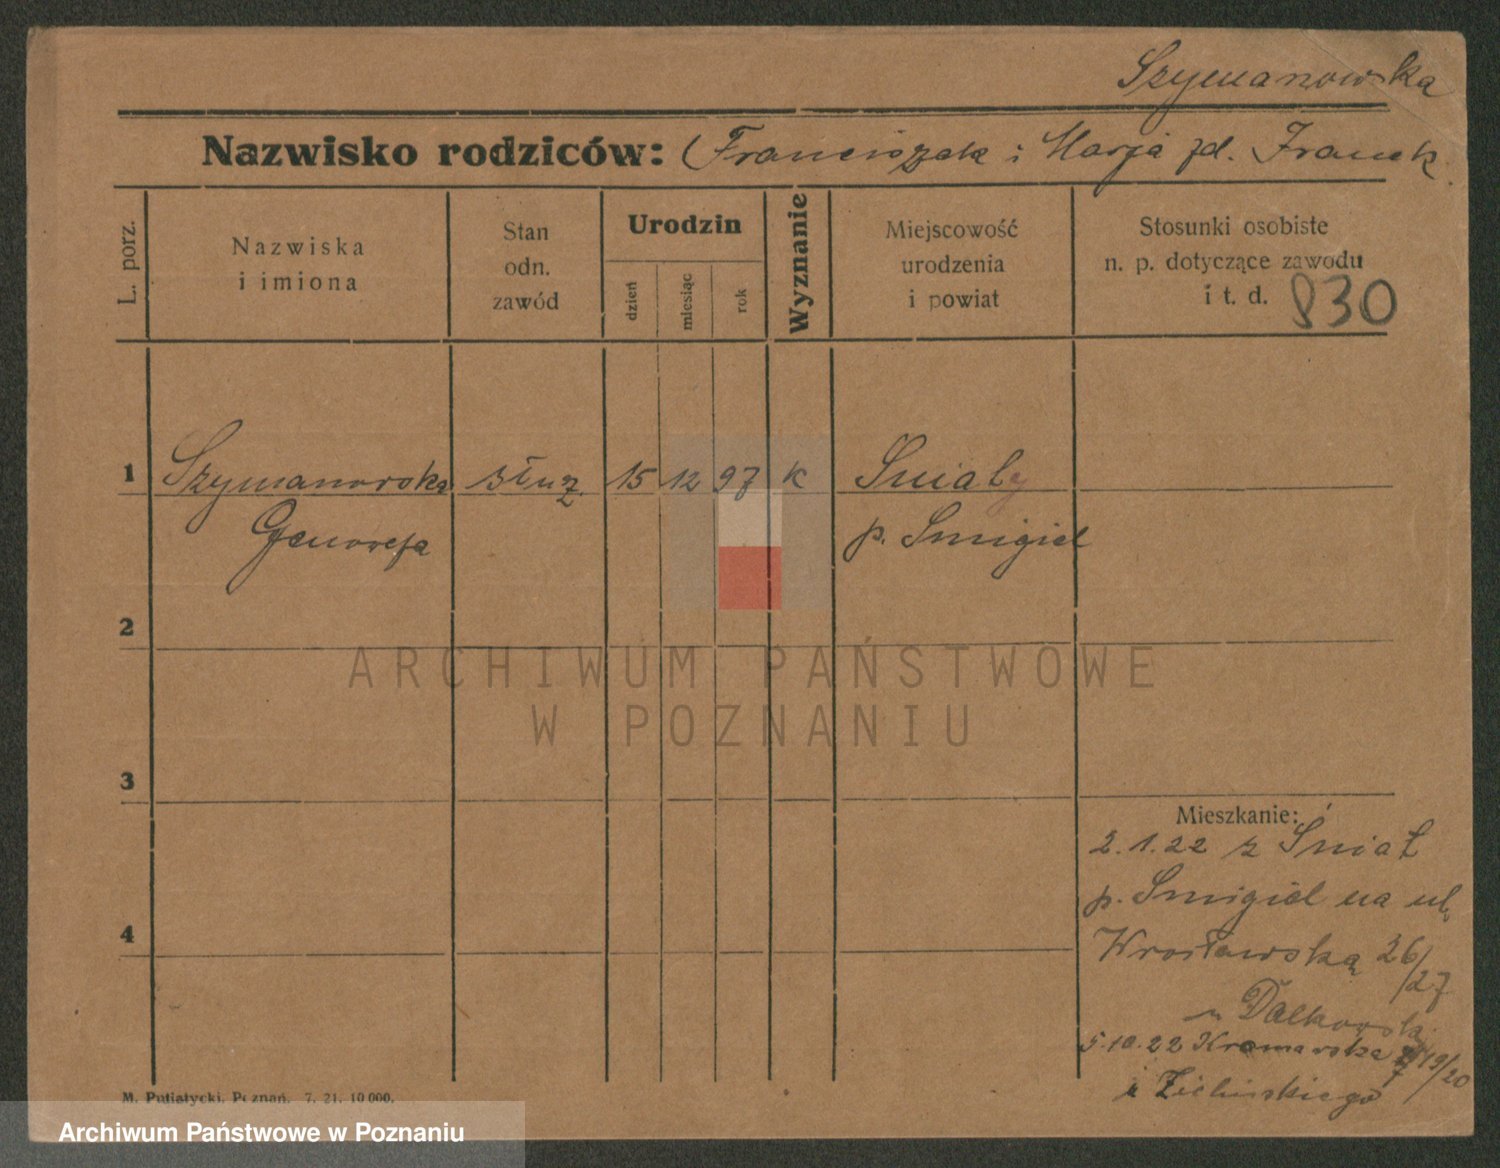 Szymanowska
Nazwisko rodziców: (Franciszek i Marja zd. Franek
L. porz.
Nazwiska
i imiona
Stan
odn.
zawód
Urodzin
dzień
miesiąc
rok
Wyznanie
Miejscowość
urodzenia
i powiat
Stosunki osobiste
n. p. dotyczące zawodu
i t. d. 830
1 Szymanowska służ. 15 12 97 k Śniaty
Genowefa p. Śmigiel
2
ARCHIWUM PAŃSTWOWE
W POZNANIU
3
Mieszkanie:
2.1.22 z Śniat
p. Śmigiel na ul.
4
Wrocławską 26/27
u Dalkowsk.
5.10.22 Kramarska 19/20
u Zielińskiego
M. Putiatycki, Poznań. 7. 21. 10 000.
Archiwum Państwowe w Poznaniu